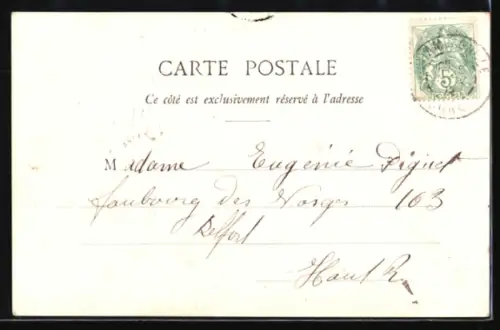 CARTE POSTALE
Ce côté est exclusivement réservé à l'adresse
5
Madame Eugénie Piguet
faubourg des Vosges 163
Belfort
Haut R.